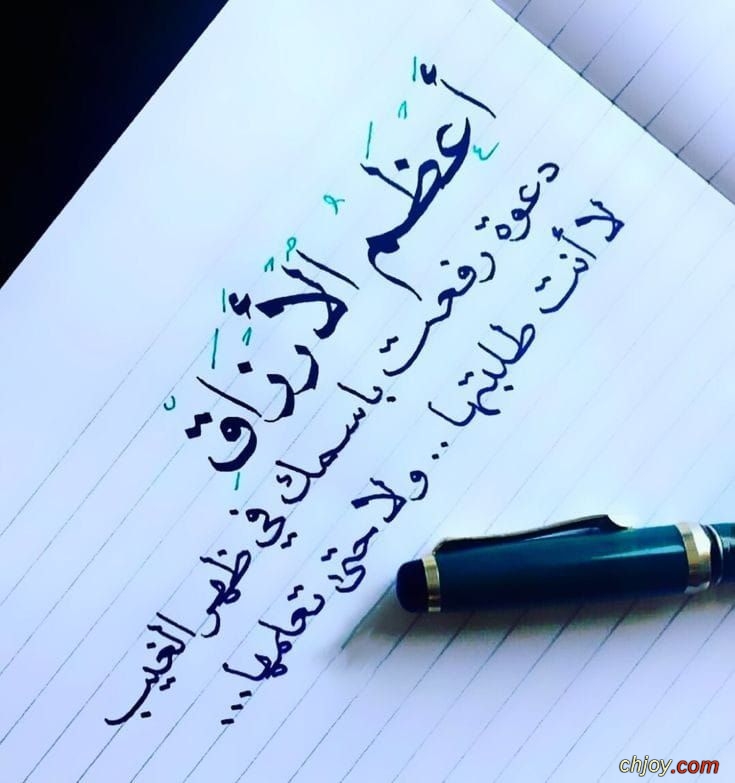 أَعْظَمُ الْأَرْزَاقِ
دعوة رفعت باسمك في ظهر الغيب
لا أنت طلبتها.. ولا حتى تعلمها...
chjoy.com